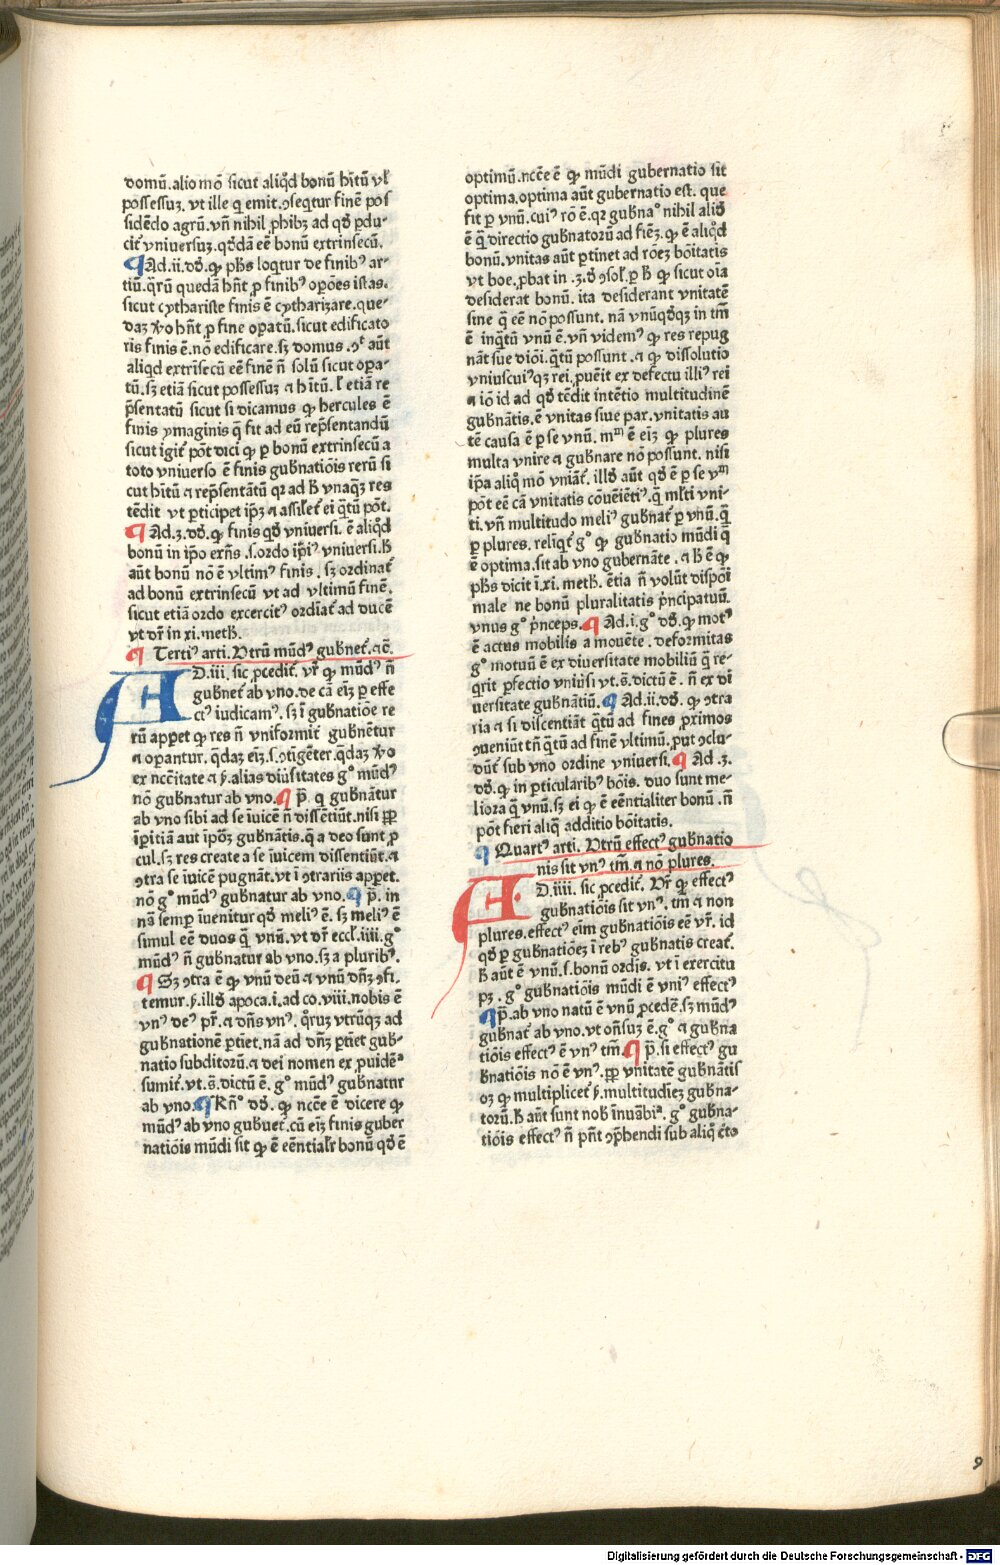 domū. alio mō sicut aliqd bonū hītū vł
possessuꝫ. vt ille q̄ emit. ꝯseqtur finē pos
sidēdo agrū. vñ nihil ꝓhibꝫ ad qđ ꝑdu-
cit᷑ vniversuꝫ. qđdā eē bonū extrinsecū.
¶ Ad. ii. dđ. ꝙ pħs loqtur de finibꝰ ar-
tiū. q̄rū quedā hñt ꝓ finibꝰ oꝑōes istas.
sicut cythariste finis ē cytharizare. que-
daꝫ v̊o hñt ꝓ fine oꝑatū. sicut edificato
ris finis ē. nō edificare. sꝫ domus. ꝯt᷑ aūt
aliqd extrīsecū eē finē ñ solū sicut oꝑa-
tū. sꝫ etiā sicut possessuꝫ ⁊ hītū. ł etiā re
p̄sentatū sicut si dicamus ꝙ hercules ē
finis ymaginis q̄ fit ad eū rep̄sentandū
sicut igit᷑ pōt dici ꝙ ꝑ bonū extrinsecū a
toto vniverso ē finis gub̄natiōis rerū si
cut hītū ⁊ rep̄sentātū qꝛ ad ħ vnaq̄ꝫ res
tēdit vt ꝑticipet ip̄ꝫ ⁊ assiłet᷑ ei q̄tū pōt.
¶ Ad. 3. dđ. ꝙ finis qđ vniversi. ē aliqd
bonū in ip̄o exñs .s. ordo ip̄iꝰ vniversi. ħ
aūt bonū nō ē vltimꝰ finis. sꝫ ordinat᷑
ad bonū extrinsecū vt ad vltimū finē.
sicut etiā ordo excercitꝰ ordīat᷑ ad ducē
vt dr̄ in xi. metħ.
¶ Tertiꝰ arti. Vtrū mūdꝰ gub̄net᷑. ⁊c̄.
AD. iii. sic ꝓcedit᷑. vr̄ ꝙ mūdꝰ ñ
gub̄net᷑ ab vno. de cā eīꝫ ꝑ effe
ctꝰ iudicamꝰ. sꝫ ī gub̄natiōe re
rū appet ꝙ res ñ vniformit᷑ gub̄nētur
⁊ oꝑantur. q̄daꝫ eīꝫ .s. ꝯtīgēter. q̄daꝫ v̊o
ex nccītate ⁊ ẜ. alias diūsitates gº mūdꝰ
nō gub̄natur ab vno. ¶ p̄. q̄ gub̄nātur
ab vno sibi ad se īuicē ñ dissētiūt. nisi ꝓꝑ
īꝑitiā aut īpōꝫ gub̄nātis. q̄ a deo sunt ꝓ
cul. sꝫ res create a se īuicem dissentiūt. ⁊
ꝯtra se īuicē pugnāt. vt ī ꝯtrariis appet.
nō gº mūdꝰ gub̄natur ab vno. ¶ p̄. in
nā semꝑ īuenitur qđ meliꝰ ē. sꝫ meliꝰ ē
simul eē duos q̄ vnū. vt dr̄ eccł. iiii. gº
mūdꝰ ñ gub̄natur ab vno. sꝫ a pluribꝰ.
¶ Sꝫ ꝯtra ē ꝙ vnū deū ⁊ vnū dñꝫ ꝯfi.
temur. ẜ. illđ apoca. i. ad co. viii. nobis ē
vnꝰ deꝰ pr̄. ⁊ dñs vnꝰ. q̄ruꝫ vtrūqꝫ ad
gub̄nationē ꝑtiet. nā ad dñꝫ ꝑtiet gub̄-
natio subditorū. ⁊ dei nomen ex ꝓuidēᵃ
sumit᷑. vt. s̄. dictū ē. gº mūdꝰ gub̄natur
ab vno. ¶ Rñº dđ. ꝙ nccē ē dicere ꝙ
mūdꝰ ab vno gub̄uet᷑. cū eīꝫ finis guber
natiōis mūdi sit ꝙ ē eēntialr̄ bonū qđ ē
optimū. nccē ē ꝙ mūdi gubernatio sit
optima. optima aūt gubernatio est. que
fit ꝑ vnū. cuiꝰ rō ē. qꝛ gub̄naº nihil aliđ
ē q̄ directio gub̄natorū ad fiēꝫ. ꝙ ē aliqd
bonū. vnitas aūt ꝑtinet ad rōeꝫ bōitatis
vt boe. ꝓbat in .3. đ ꝯsoł. ꝑ ħ ꝙ sicut oīa
desiderat bonū. ita desiderant vnitatē
sine q̄ eē nō possunt. nā vnūqđqꝫ in tm̄
ē inq̄tū vnū ē. vñ videmꝰ ꝙ res repug
nāt sue diōi. q̄tū possunt. ⁊ ꝙ dissolutio
vniuscuiꝰqꝫ rei. puēit ex defectu illiꝰ rei
⁊ iō id ad qđ tēdit intētio multitudinē
gub̄nātis. ē vnitas siue par. vnitatis au
tē causa ē ꝑ se vnū. mᵐ ē eīꝫ ꝙ plures
multa vnire ⁊ gub̄nare nō possunt. nisi
ip̄a aliqº mō vniāt᷑. illđ aūt qđ ē ꝑ se vᵐ
pōt eē cā vnitatis cōueēiētiꝰ. q̄ młti vni-
ti. vñ multitudo meliꝰ gub̄nat᷑ ꝑ vnū. q̄
ꝑ plures. relīqt᷑ gº ꝙ gub̄natio mūdi q̄
ē optima. sit ab vno gubernāte. ⁊ ħ ē ꝙ
pħs dicit ī. xi. metħ. ētia ñ volūt dispōi
male ne bonū pluralitatis p̄ncipatuū.
vnus gº p̄nceps. ¶ Ad. i. gº dđ. ꝙ motꝰ
ē actus mobilis a mouēte. deformitas
gº motuū ē ex diversitate mobiliū q̄ re-
q̄rit ꝑfectio vniūsi vt. s̄. dictū ē. ñ ex di
uersitate gub̄nātiū. ¶ Ad. ii. dđ. ꝙ ꝯtra
ria ⁊ si discentiāt q̄tū ad fines ꝓximos
ꝯueniūt tñ q̄tū ad finē vltimū. ꝓut ꝯclu-
dūt᷑ sub vno ordine vniversi. ¶ Ad .3.
dđ. ꝙ in ꝑticularibꝰ bōis. duo sunt me-
liora q̄ vnū. sꝫ ei ꝙ ē eēntialiter bonū. ñ
pōt fieri aliq̄ additio bōitatis.
¶ Quartꝰ arti. Vtrū effectꝰ gub̄natio
nis sit vnꝰ tm̄. ⁊ nō plures.
AD. iiii. sic ꝓcedit᷑. Vr̄ ꝙ effectꝰ
gub̄natiōis sit vnꝰ. tm̄ ⁊ non
plures. effectꝰ eim gub̄natiōis eē vr̄. id
qđ ꝑ gub̄natiōeꝫ ī rebꝰ gub̄natis creat᷑.
ħ aūt ē vnū .s. bonū ordīs. vt ī exercitu
pꝫ. gº gub̄natiōis mūdi ē vniꝰ effectꝰ
¶ p̄. ab vno natū ē vnū ꝓcedē. sꝫ mūdꝰ
gub̄nat᷑ ab vno. vt oñsuꝫ ē. gº ⁊ gub̄na
tiōis effectꝰ ē vnꝰ tm̄. ¶ p̄. si effectꝰ gu
b̄natiōis nō ē vnꝰ. ꝓꝑ vnitatē gub̄nātis
oꝫ ꝙ multiplicet᷑ ẜ. multitudieꝫ gub̄na-
torū. ħ aūt sunt nob̄ īnuābiᵃ. gº gub̄na-
tiōis effectꝰ ñ pñt ꝯp̄hendi sub aliq̄ c̄to
9
Digitalisierung gefördert durch die Deutsche Forschungsgemeinschaft - DFG